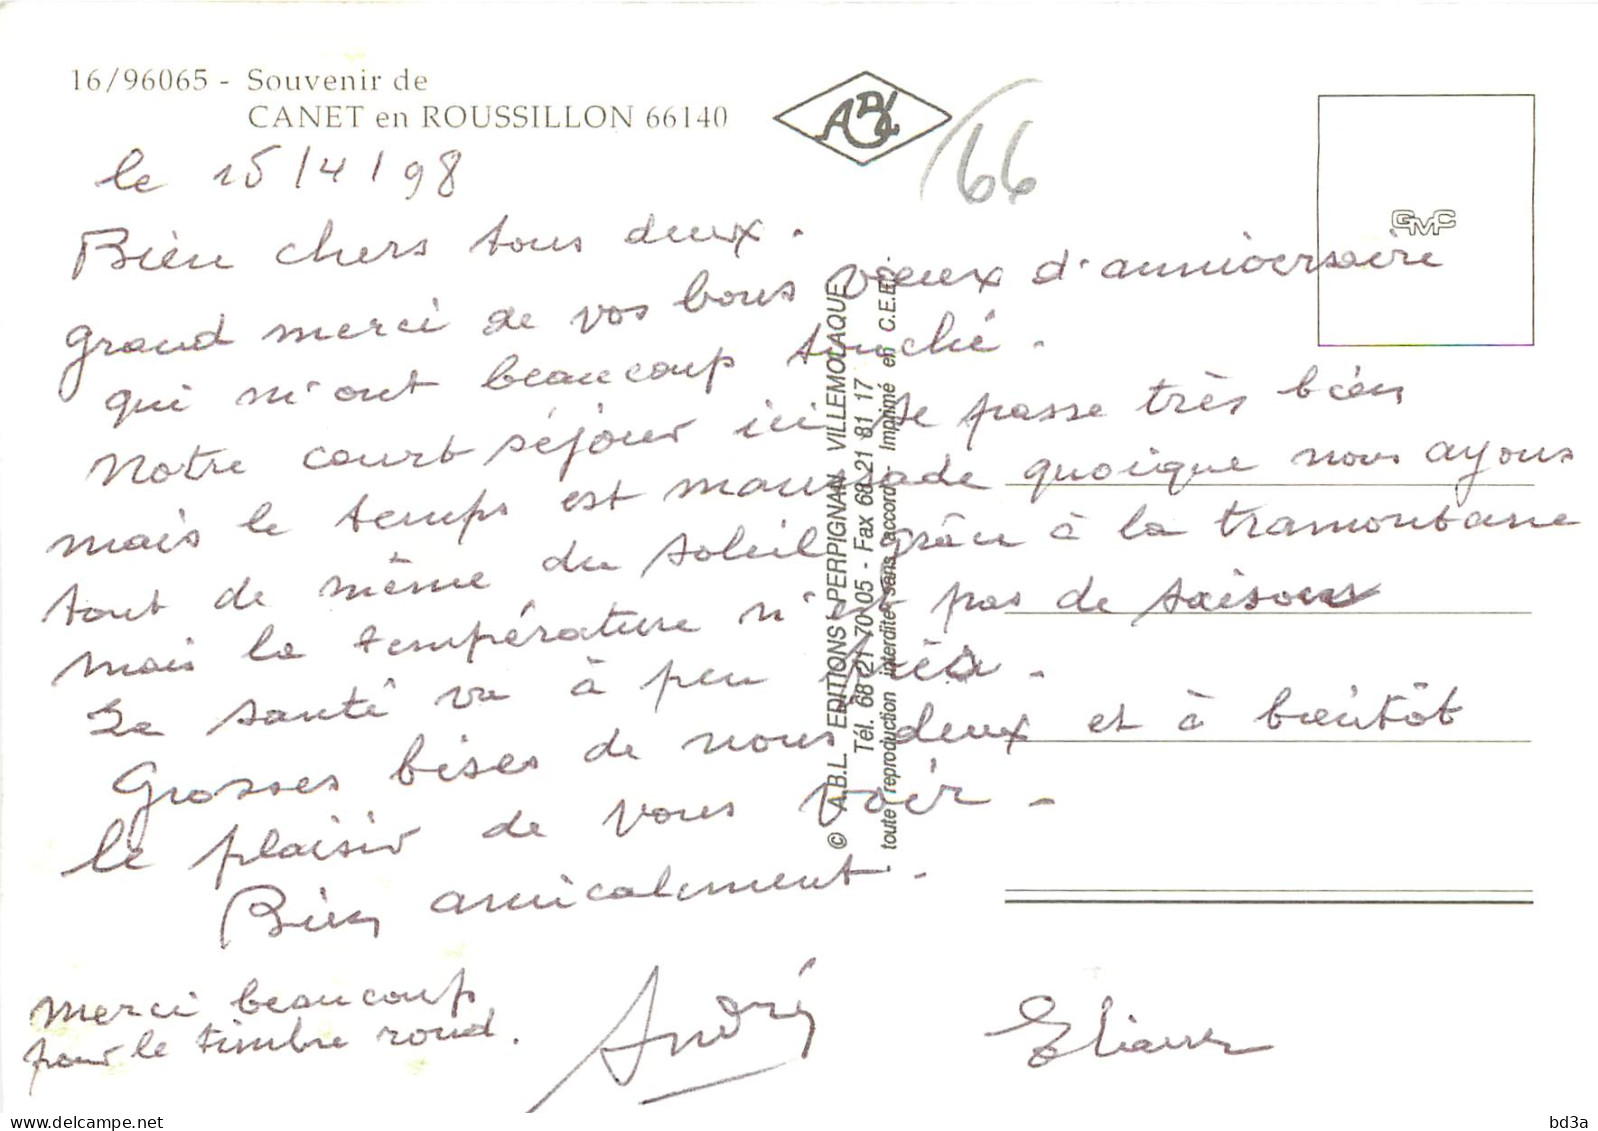 16/96065 - Souvenir de
CANET en ROUSSILLON 66140
ABL
66
GMC
le 15/4/98
Bien chers tous deux.
grand merci de vos bons voeux d'anniversaire
qui m'ont beaucoup touché.
Notre court séjour ici se passe très bien
mais le temps est maussade quoique nous ayons
tout de même du soleil grâce à la tramontane
mais la température n'est pas de saison
La santé va à peu près.
Grosses bises de nous deux et à bientôt
le plaisir de vous voir -
Bien amicalement.
Merci beaucoup
pour le timbre rond.
André
Eliane
© A.B.L. EDITIONS PERPIGNAN VILLEMOLAQUE
Tél. 68 21 70 05 - Fax 68 21 81 17
toute reproduction interdite sans l'accord - Imprimé en C.E.E.
delcampe.net
bd3a